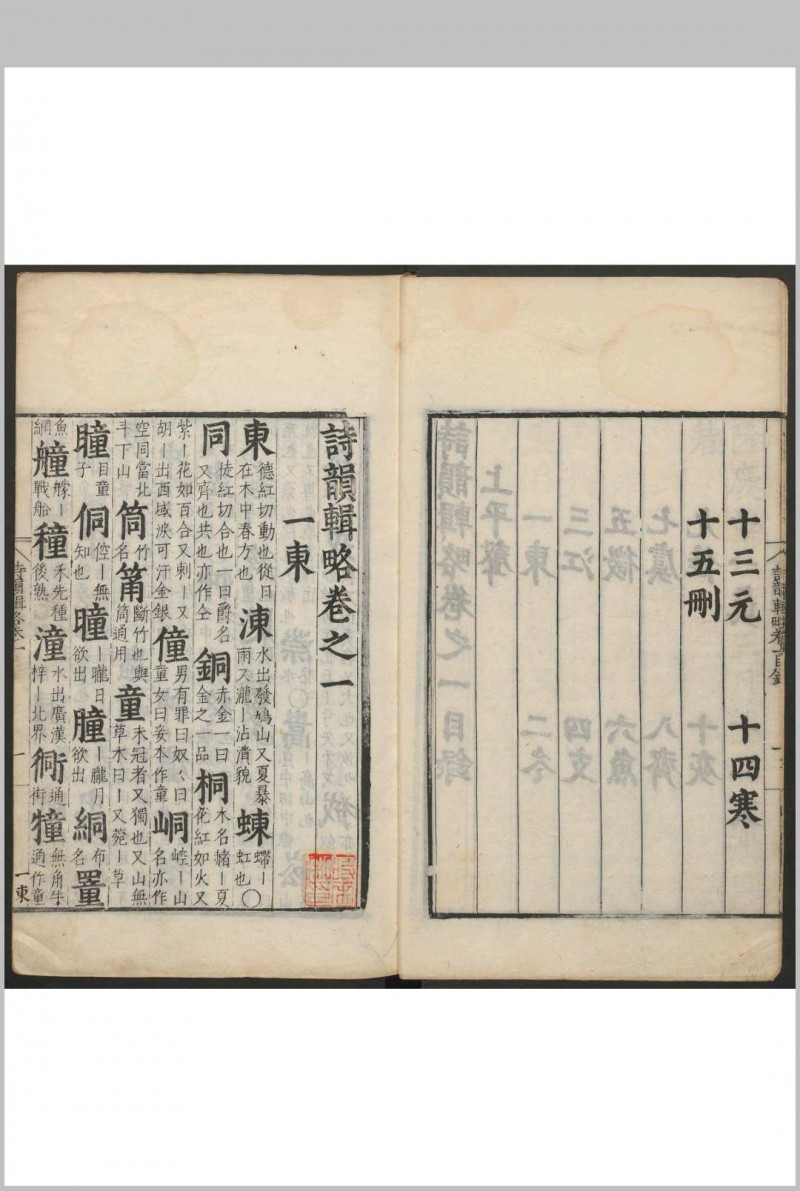 十三元 十四寒
十五刪
詩韻輯略卷一目錄
詩韻輯略卷之一
一東
東德紅切動也從日在木中春方也涷水出發鳩山又夏暴雨又瀧丨沾漬貌蝀螮丨虹也○
同徒紅切合也一曰爵名又齊也共也亦作仝銅赤金一曰金之一品桐木名丨夏花紅如火又
紫丨花如百合又刺丨又胡丨出西域淚可汗金銀僮男有罪曰奴〻曰童女曰妾本作童峒崆丨山名亦作
空同當北斗下山筒竹名筩斷竹也與筒通用童未冠者又獨也又山無草木曰丨又丨草
瞳目童子侗倥丨無知也曈丨曨日欲出朣丨朧月欲出絧布名罿
魚網艟艨丨戰船穜禾先種後熟潼水出廣漢梓丨北界衕通街犝無角牛通作童
詩韻輯略卷一 一 一東